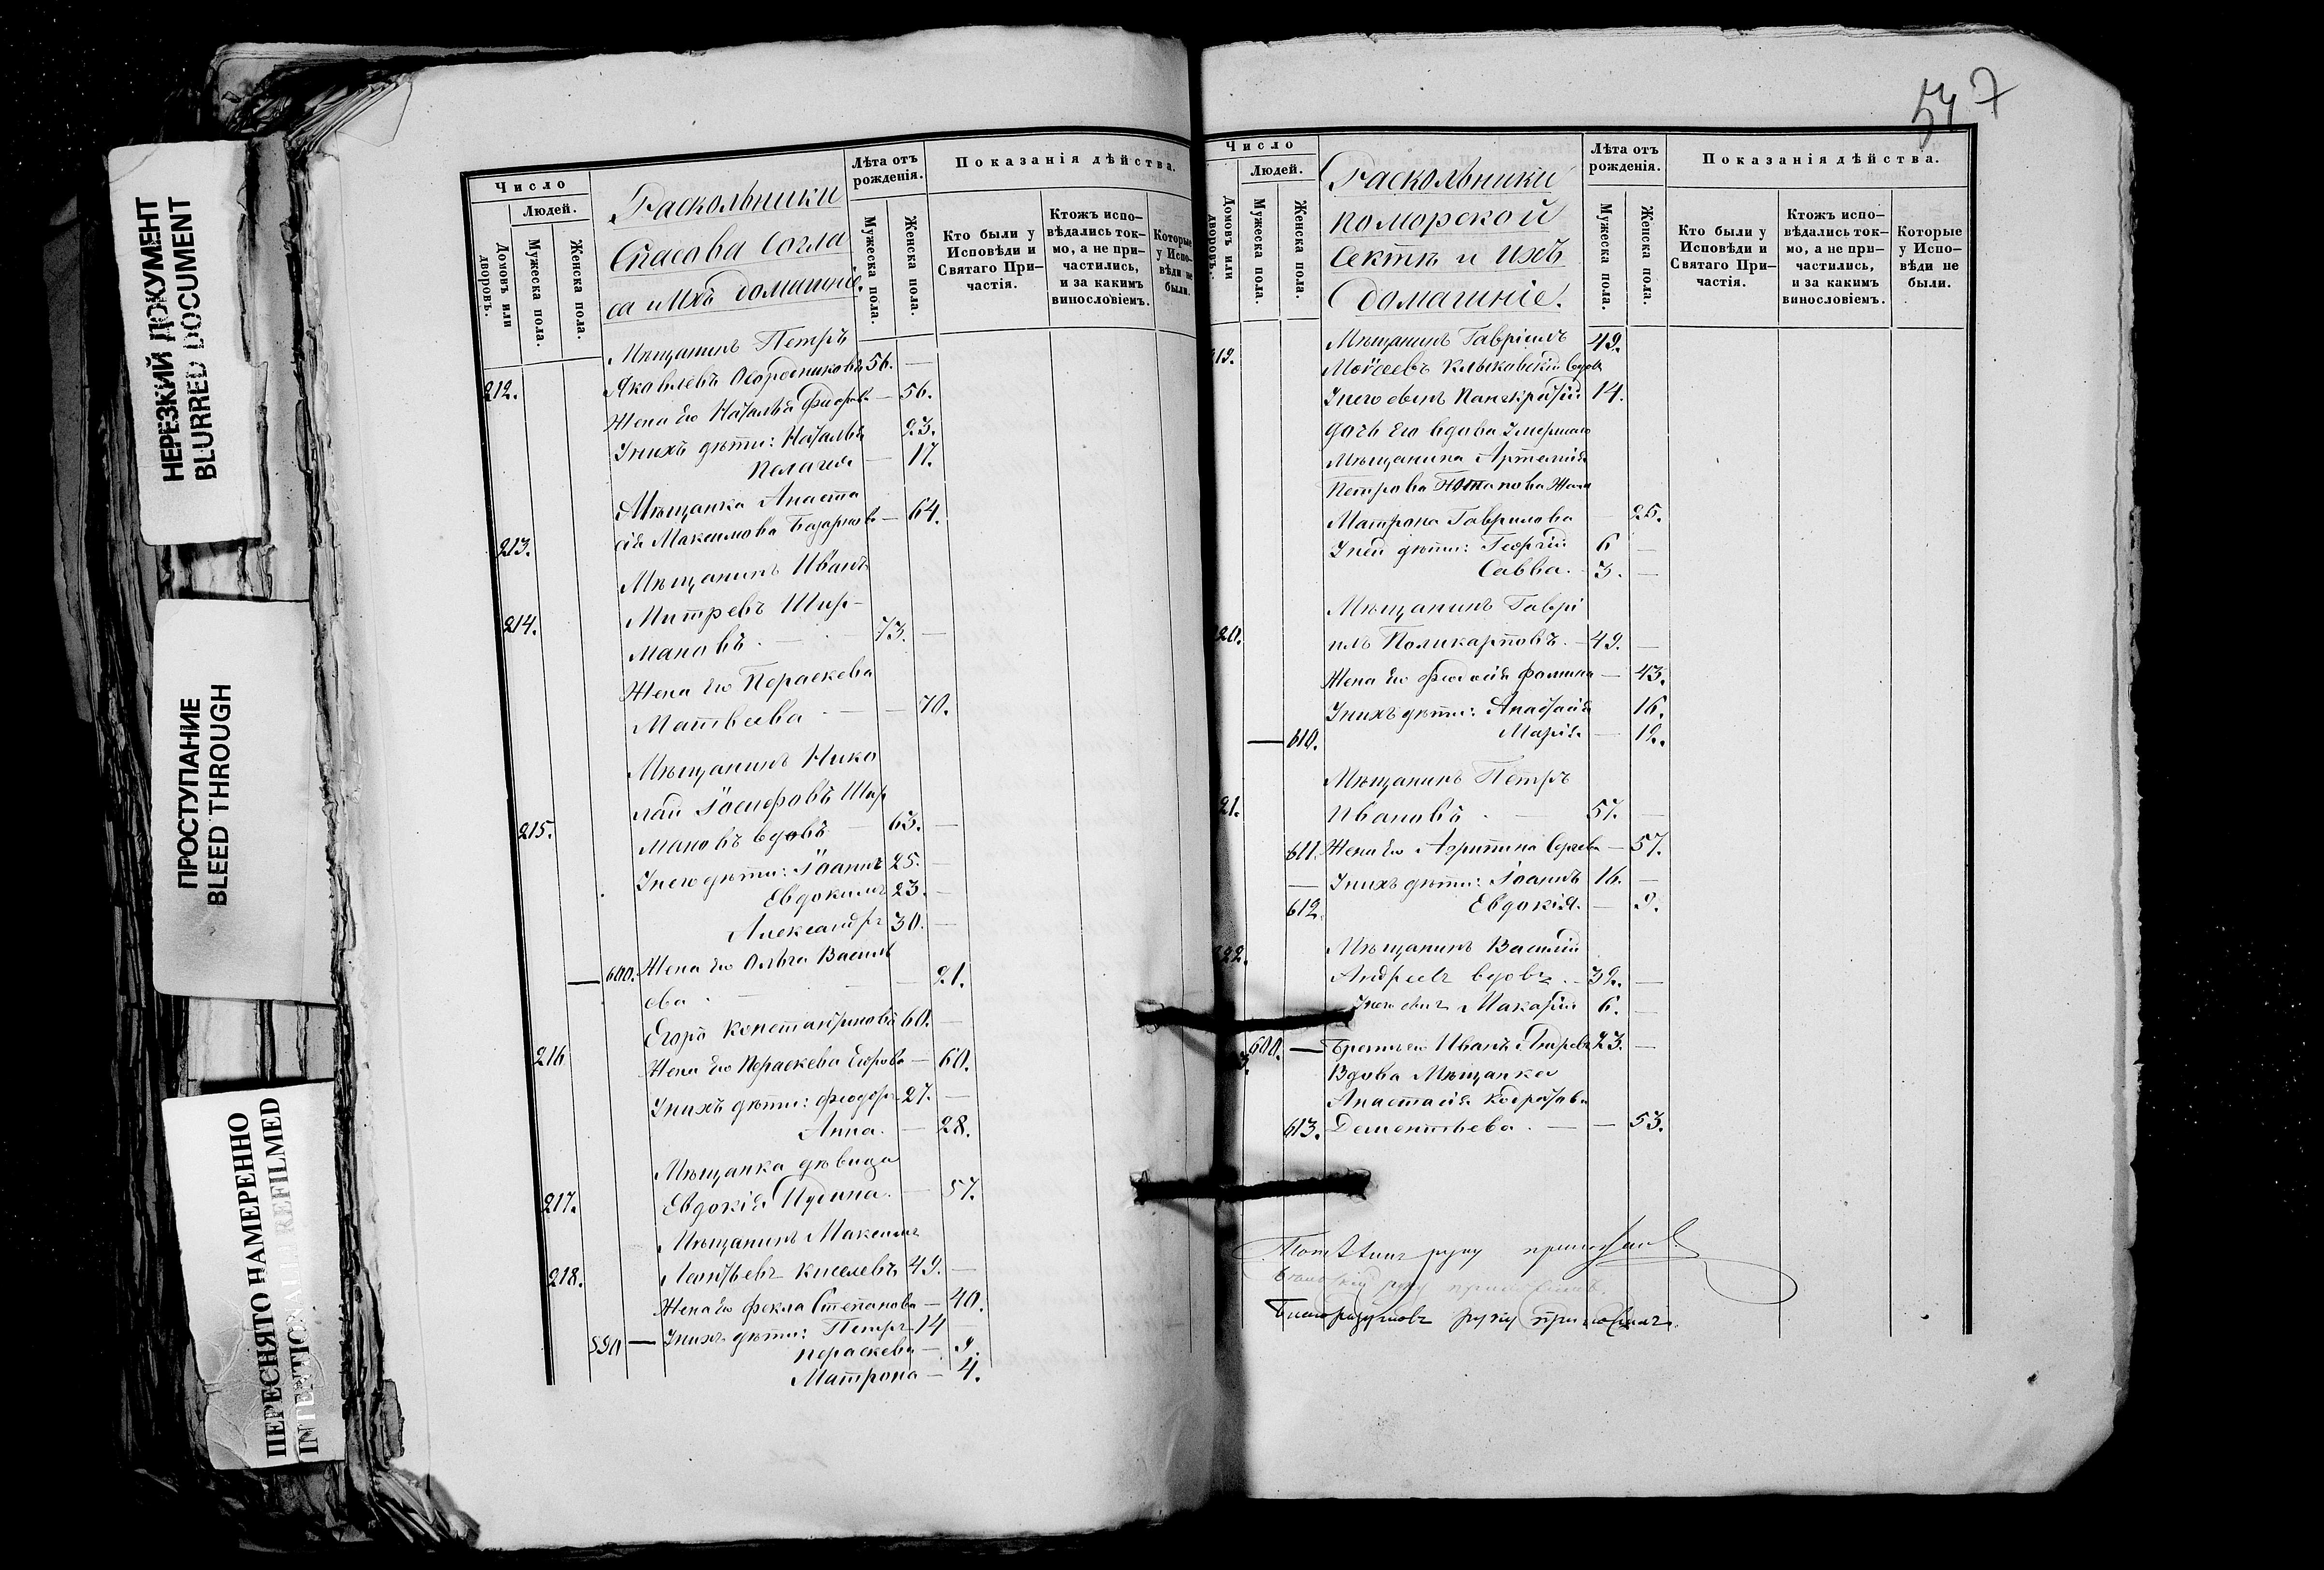 НЕРЕЗКИЙ ДОКУМЕНТ
BLURRED DOCUMENT
ПРОСТУПАНИЕ
BLEED THROUGH
ПЕРЕСНЯТО НАМЕРЕННО
INTENTIONALLY REFILMED
Число
Людей.
Домовъ или дворовъ.
Мужеска пола.
Женска пола.
Раскольники
Спасова Согла
са и Ихъ домашніе.
Лѣта отъ рожденія.
Мужеска пола.
Женска пола.
Показанія дѣйства.
Кто были у Исповѣди и Святаго При-частія.
Ктожъ испо-вѣдались ток-мо, а не при-частились, и за какимъ винословіемъ.
Которые у Испо-вѣди не были.
Мѣщанинъ Петръ
212. Яковлевъ Огородниковъ 56. —
Жена Его Наталья Федорова — 56.
У нихъ дѣти: Наталья 23.
Пелагея — 17.
Мѣщанка Анаста
213. сія Максимова — 64.
Мѣщанинъ Иванъ
214. Митревъ Шир-
мановъ. — 73. —
Жена Его Пераскева
Матвеева — — 70.
Мѣщанинъ Нико
лай Шир
215. мановъ вдовъ — 63. —
У него дѣти: Іоаннъ 25. —
Евдокимъ 23. —
Александръ 30. —
— 600. Жена Его Ольга Василь
ева — — 21.
216 Егоръ Константиновъ 60. —
Жена Его Пераскева Егорова — 60.
У нихъ дѣти: Феодоръ 27. —
Анна. — 28.
Мѣщанка дѣвица
217. Евдокія — 57.
Мѣщанинъ Максимъ
218. Леонтьевъ Киселевъ 49. —
Жена Его Фекла Степанова — 40.
590 — У нихъ дѣти: Петръ 14 —
Пераскева — 9.
Матрона — 4.
547
Число
Людей.
Домовъ или дворовъ.
Мужеска пола.
Женска пола.
Раскольники
поморской
Секты и Ихъ
домашніе.
Лѣта отъ рожденія.
Мужеска пола.
Женска пола.
Показанія дѣйства.
Кто были у Исповѣди и Святаго При-частія.
Ктожъ испо-вѣдались ток-мо, а не при-частились, и за какимъ винословіемъ.
Которые у Испо-вѣди не были.
219. Мѣщанинъ Гавріилъ 49.
Моѵсеевъ вдовъ
У него сынъ Панкратій 14.
Дочь Его вдова умершаго
Мѣщанина Артемія
Петрова Потапова жена
Матрона Гаврилова — 25.
У ней дѣти: Георгій 6 —
Савва. 3. —
Мѣщанинъ Гаврі
20. илъ Поликарповъ. — 49. —
Жена Его Феодосія Фомина — 43.
У нихъ дѣти: Анастасія 16.
— 610. Марія — 12.
Мѣщанинъ Петръ
21. Ивановъ — 57. —
611. Жена Его Агрипина Сергѣева — 57.
— У нихъ дѣти: Іоаннъ 16. —
612. Евдокія. — 9.
Мѣщанинъ Василій
22. Андреевъ вдовъ. — 32. —
У него сынъ Макарій 6. —
600. — Братъ его Иванъ Андреевъ 23. —
3. Вдова Мѣщанка
Анастасія Кодратова
613. Дементьева. — — 53.
руку приложилъ
руку приложилъ
руку приложилъ.